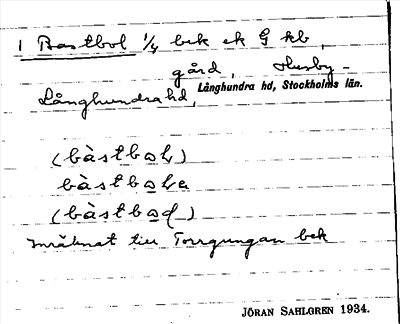 1 Bastbol 1/4 bek ek G kb,
gård, Husby-
Långhundra hd,
Långhundra hd, Stockholms län.
(bàstbɷɫ)
bàstbɷɫe
(bàstbɷɖ)
Inräknat till Torrgungan bek
JÖRAN SAHLGREN 1934.